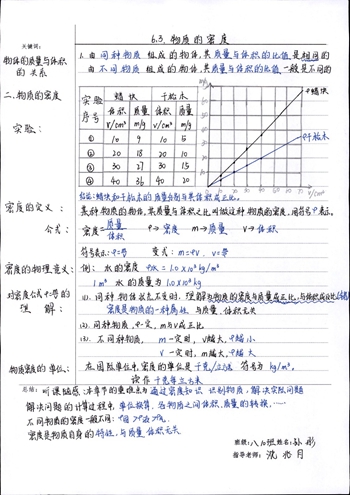 6.3. 物质的密度
关键词:
物体的质量与体积
的 关系
1. 由 同种物质 组成 的 物体, 其 质量与体积的比值 是 相同的
由 不同物质 组成 的 物体, 其 质量与体积的比值 一般是不同的
二. 物质的密度
实验:
实验 蜡块 干松木
序号 体积 质量 体积 质量
V/cm³ m/g V/cm³ m/g
① 10 9 10 5
② 20 18 20 10
③ 30 27 30 15
④ 40 36 40 20
m/g
蜡块
干松木
V/cm³
结论: 蜡块和干松木的质量分别与其体积成正比。
密度的定义:
某种物质的物体, 其质量与体积之比叫做这种物质的密度, 用符号ρ表示。
公式:
密度=质量/体积 ρ→密度 m→质量 V→体积
变式: m=ρV
密度的物理意义:
例: 水的密度 ρ水 = 1.0×10³ kg/m³
1m³ 水的质量为 1.0×10³ kg
理 解:
密度是物质的一种属性
(2). 同种物质, ρ一定, m与V成正比
(3). 不同物质, m一定时, V越大, ρ越小
V一定时, m越大, ρ越大
物质密度的单位:
在国际单位制, 密度的单位是 千克/立方米 符号为 kg/m³,
读作 千克每立方米
总结: 听课随感: 本章节的重难点为 通过密度知识 识别物质, 解决实际问题
解决问题的计算过程中, 单位换算, 各物质之间体积、质量的转换, ……
不同物质的密度一般不同:
密度是物质自身的特性, 与质量 体积无关
班级: 八 姓名: 孙
指导老师: 沈 月